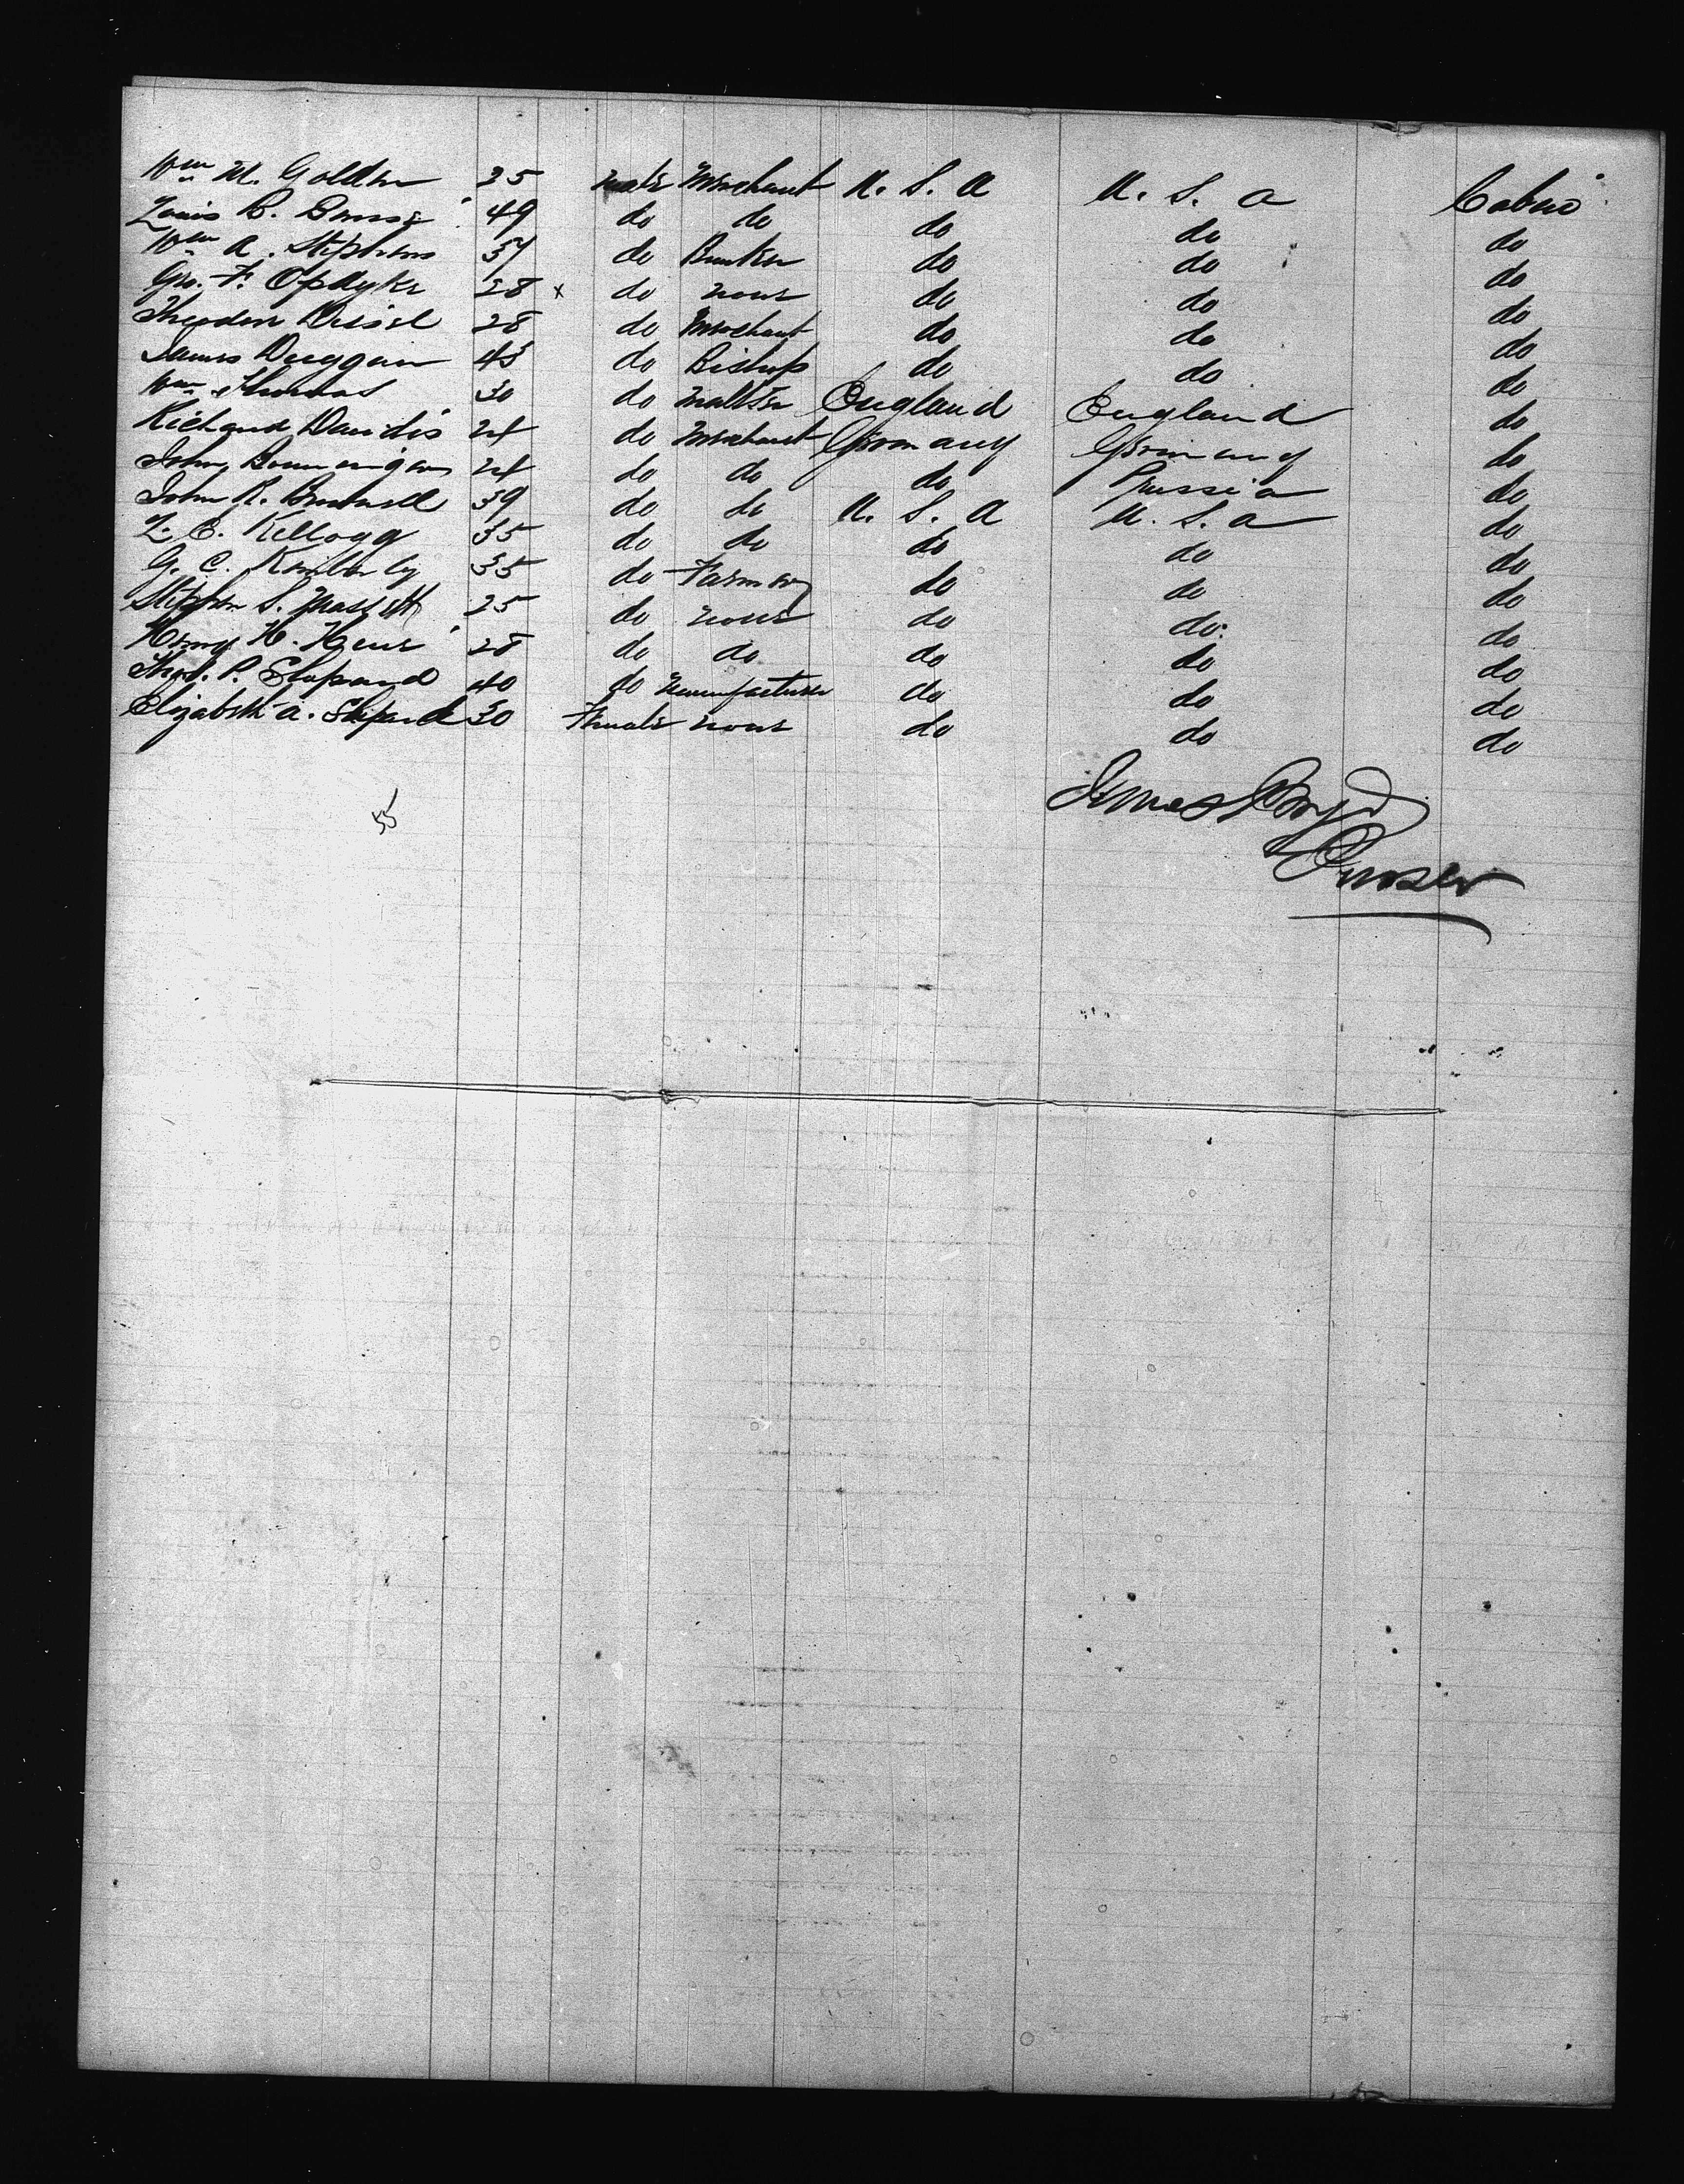 Wm M. Golden 35 male Merchant U. S. A U. S. A Cabin
Louis B. 49 do do do do do
Wm A. Stephens 37 do Banker do do do
Geo. F. Opdyke 28 x do none do do do
Theodore 28 do Merchant do do do
James Duggan 43 do Bishop do do do
Wm Thomas 30 do Malster England England do
Richard Davidis 24 do Merchant Germany Germany do
John 24 do do do Prussia do
John R. 39 do do U. S. A U. S. A do
L. E. Kellogg 35 do do do do do
G. C. Kimberly 35 do Farmer do do do
Stephen S. Massett 25 do none do do do
Henry H. 28 do do do do do
Thos. P. Shepard 40 do Manufacturer do do do
Elizabeth A. Shepard 30 Female none do do do
James Boyd
55
Purser